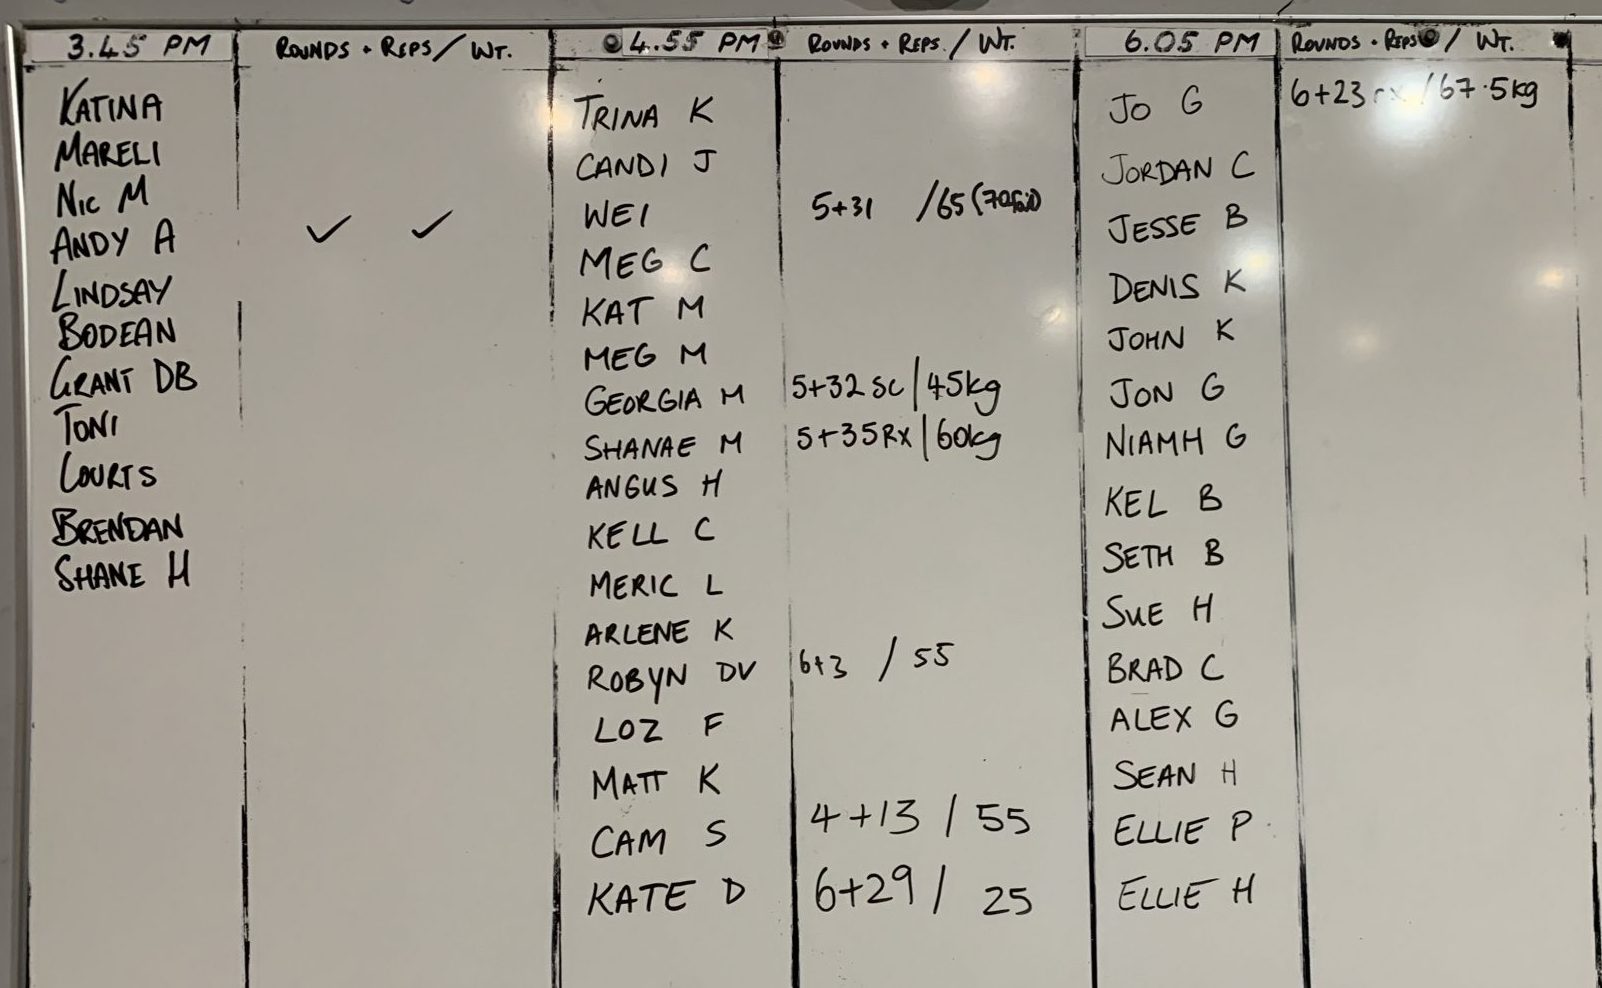 3.45 PM
ROUNDS + REPS / WT.
KATINA
MARELI
NIC M
ANDY A ✓ ✓
LINDSAY
BODEAN
GRANT DB
TONI
COURTS
BRENDAN
SHANE H
4.55 PM
ROUNDS + REPS / WT.
TRINA K
CANDI J
WEI 5+31 /65 (70 fail)
MEG C
KAT M
MEG M
GEORGIA M 5+32 SC | 45kg
SHANAE M 5+35 RX | 60kg
ANGUS H
KELL C
MERIC L
ARLENE K
ROBYN DV 6+3 / 55
LOZ F
MATT K
CAM S 4+13 / 55
KATE D 6+29 / 25
6.05 PM
ROUNDS + REPS / WT.
JO G 6+23 rx / 67.5kg
JORDAN C
JESSE B
DENIS K
JOHN K
JON G
NIAMH G
KEL B
SETH B
SUE H
BRAD C
ALEX G
SEAN H
ELLIE P
ELLIE H